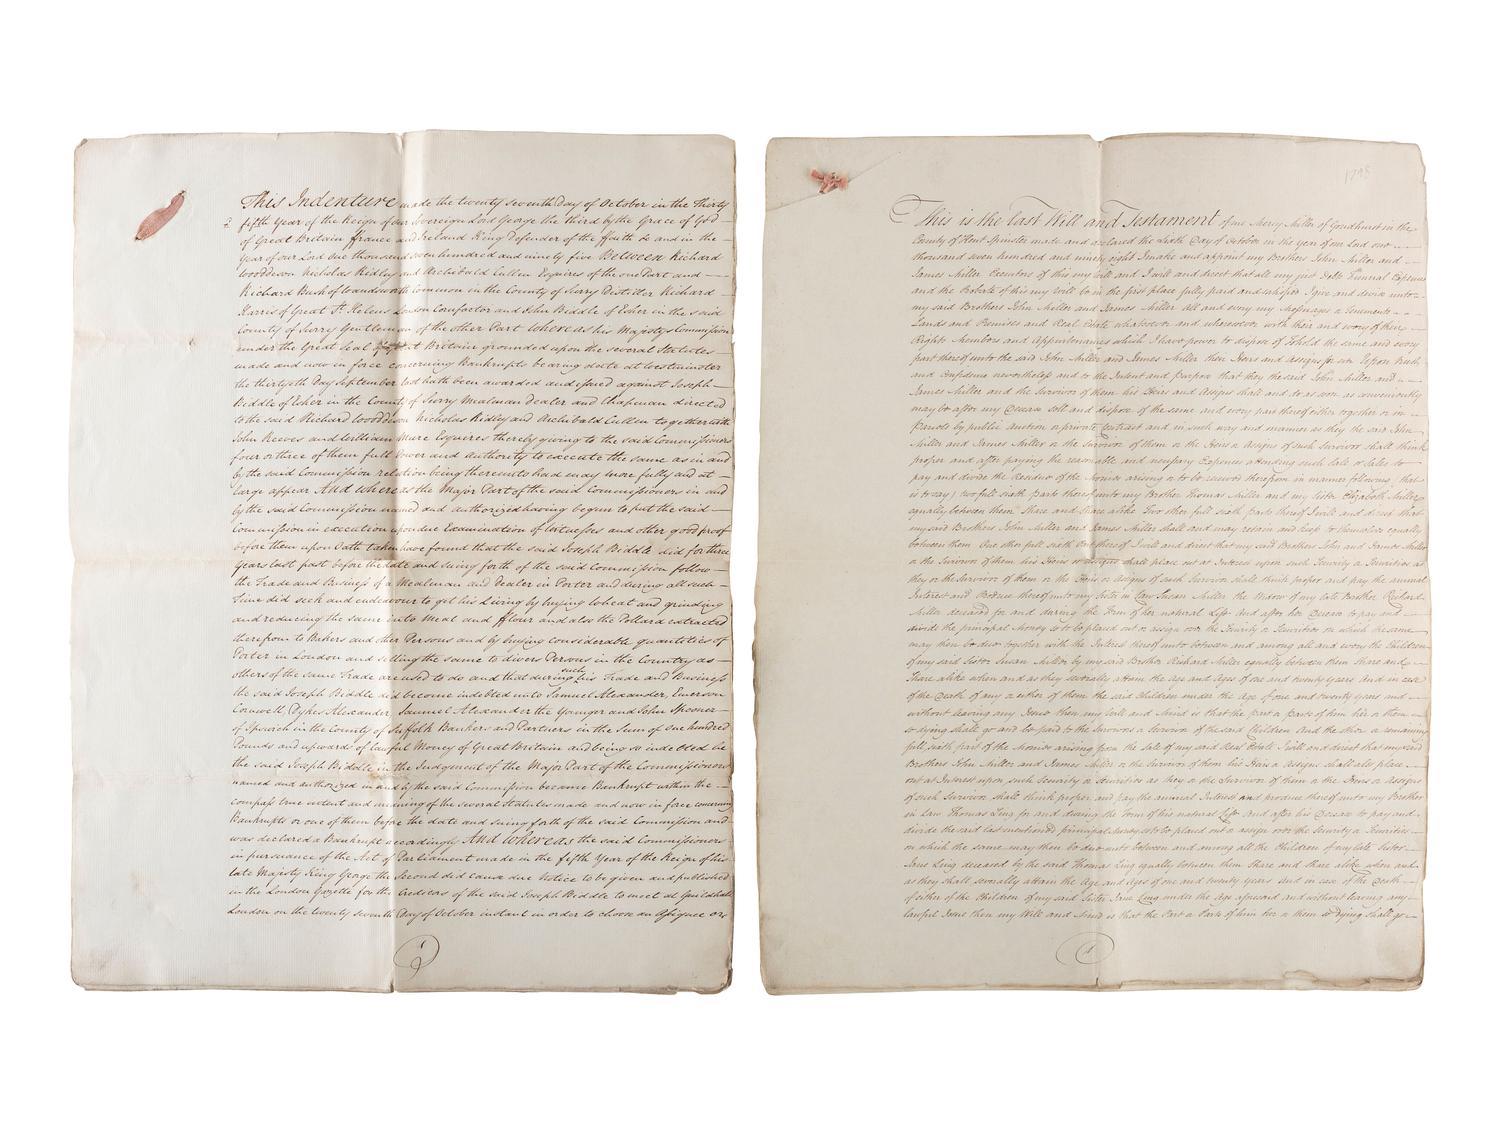 This Indenture made the twenty seventh Day of October in the Thirty
fifth Year of the Reign of our Sovereign Lord George the third by the Grace of God
of Great Britain ffrance and Ireland King Defender of the ffaith &c and in the
Year of our Lord one thousand seven hundred and ninety five Between Richard
Wooddeson Nicholas Ridley and Archibald Cullen Esquires of the one Part and
Richard Bush of Wandsworth Common in the County of Surry Distiller Richard
Harris of Great St. Helens London Cornfactor and John Biddle of Esher in the said
County of Surry Gentleman of the other Part Whereas his Majestys Commission
under the Great Seal of Britain grounded upon the several Statutes
made and now in force concerning Bankrupts bearing date at Westminster
the thirtyeth Day September last hath been awarded and issued against Joseph
Biddle of Esher in the County of Surry Mealman Dealer and Chapman directed
to the said Richard Wooddeson Nicholas Ridley and Archibald Cullen together with
John Reeves and William Mure Esquires thereby giving to the said Commissioners
four or three of them full Power and Authority to execute the same as in and
by the said Commission relation being thereunto had may more fully and at
large appear And whereas the Major Part of the said Commissioners in and
by the said Commission named and authorized having begun to put the said
Commission in execution upon due Examination of Witnesses and other good proof
before them upon Oath taken have found that the said Joseph Biddle did for three
Years last past before the date and suing forth of the said Commission follow
the Trade and Business of a Mealman and Dealer in Porter and during all such
Time did seek and endeavour to get his Living by buying Wheat and grinding
and reducing the same into Meal and fflour and also the Pollard extracted
therefrom to Bakers and other Persons and by buying considerable quantities of
Porter in London and selling the same to divers Persons in the Country as
others of the same Trade are used to do and that during such his Trade and Business
the said Joseph Biddle did become indebted unto Samuel Alexander, Emerson
Cornwell, Dykes Alexander, Samuel Alexander the Younger and John Spooner
of Ipswich in the County of Suffolk Bankers and Partners in the Sum of one hundred
Pounds and upwards of lawful Money of Great Britain and being so indebted he
the said Joseph Biddle in the Judgement of the Major Part of the Commissioners
named and authorized in and by the said Commission became Bankrupt within the
compass true intent and meaning of the several Statutes made and now in force concerning
Bankrupts or one of them before the date and suing forth of the said Commission and
was declared a Bankrupt accordingly And whereas the said Commissioners
in pursuance of the Act of Parliament made in the fifth Year of the Reign of his
late Majesty King George the Second did cause due Notice to be given and published
in the London Gazette for the Creditors of the said Joseph Biddle to meet at Guildhall
London on the twenty seventh Day of October instant in order to choose an Assignee or
1
1798
This is the last Will and Testament of me Mercy Miller of Goudhurst in the
County of Kent Spinster made and declared the Sixth Day of October in the year of our Lord one
thousand seven hundred and ninety eight I make and appoint my Brothers John Miller and
James Miller Executors of this my will and I will and direct that all my just Debts Funeral Expences
and the Probate of this my will be in the first place fully paid and satisfied I give and devise unto
my said Brothers John Miller and James Miller All and every my Messuages or Tenements
Lands and Premises and Real Estate whatsoever and wheresoever with their and every of their
Rights Members and Appurtenances which I have power to dispose of To hold the same and every
part thereof unto the said John Miller and James Miller their Heirs and Assigns for ever Upon Trust
and Confidence nevertheless and to the Intent and Purpose that they the said John Miller and
James Miller and the Survivor of them his Heirs and Assigns shall and do as soon as conveniently
may be after my Decease sell and dispose of the same and every part thereof either together or in
Parcels by public Auction or private Contract and in such way and manner as they the said John
Miller and James Miller or the Survivor of them or the Heirs or Assigns of such Survivor shall think
proper and after paying the reasonable and necessary Expences attending such Sale or Sales to
pay and divide the Residue of the Monies arising or to be received therefrom in manner following, that
is to say) two full sixth parts thereof unto my Brother Thomas Miller and my Sister Elizabeth Miller
equally between them Share and Share alike Two other full sixth parts thereof I will and direct that
my said Brothers John Miller and James Miller shall and may retain and keep to themselves equally
between them One other full sixth Part thereof I will and direct that my said Brothers John and James Miller
or the Survivor of them his Heirs or Assigns shall place out at Interest upon such Security or Securities as
they or the Survivor of them or the Heirs or Assigns of such Survivor shall think proper and pay the annual
Interest and Produce thereof unto my Sister in Law Susan Miller the Widow of my late Brother Richard
Miller deceased for and during the Term of her natural Life And after her Decease to pay and
divide the principal Money so to be placed out or assign over the Security or Securities on which the same
may then be due together with the Interest thereof unto between and among all and every the Children
of my said Sister Susan Miller by my said Brother Richard Miller equally between them Share and
Share alike when and as they severally attain the Age and Ages of one and twenty years And in case
of the Death of any or either of them the said Children under the Age of one and twenty years and
without leaving any Issue then my will and Mind is that the part or parts of him her or them
so dying shall go and be paid to the Survivors or Survivor of the said Children And the other or remaining
full sixth part of the Monies arising from the Sale of my said Real Estate I will and direct that my said
Brothers John Miller and James Miller or the Survivor of them his Heirs or Assigns shall also place
out at Interest upon such Security or Securities as they or the Survivor of them or the Heirs or Assigns
of such Survivor shall think proper and pay the annual Interest and produce thereof unto my Brother
in Law Thomas Ling for and during the Term of his natural Life And after his Decease to pay and
divide the said last mentioned principal Money so to be placed out or assign over the Security or Securities
on which the same may then be due unto between and among all the Children of my late Sister
Jane Ling deceased by the said Thomas Ling equally between them Share and Share alike when and
as they shall severally attain the Age and Ages of one and twenty years And in case of the Death
of either of the Children of my said Sister Jane Ling under the age aforesaid and without leaving any
lawful Issue then my Will and Mind is that the Part or Parts of him her or them so dying shall go
1